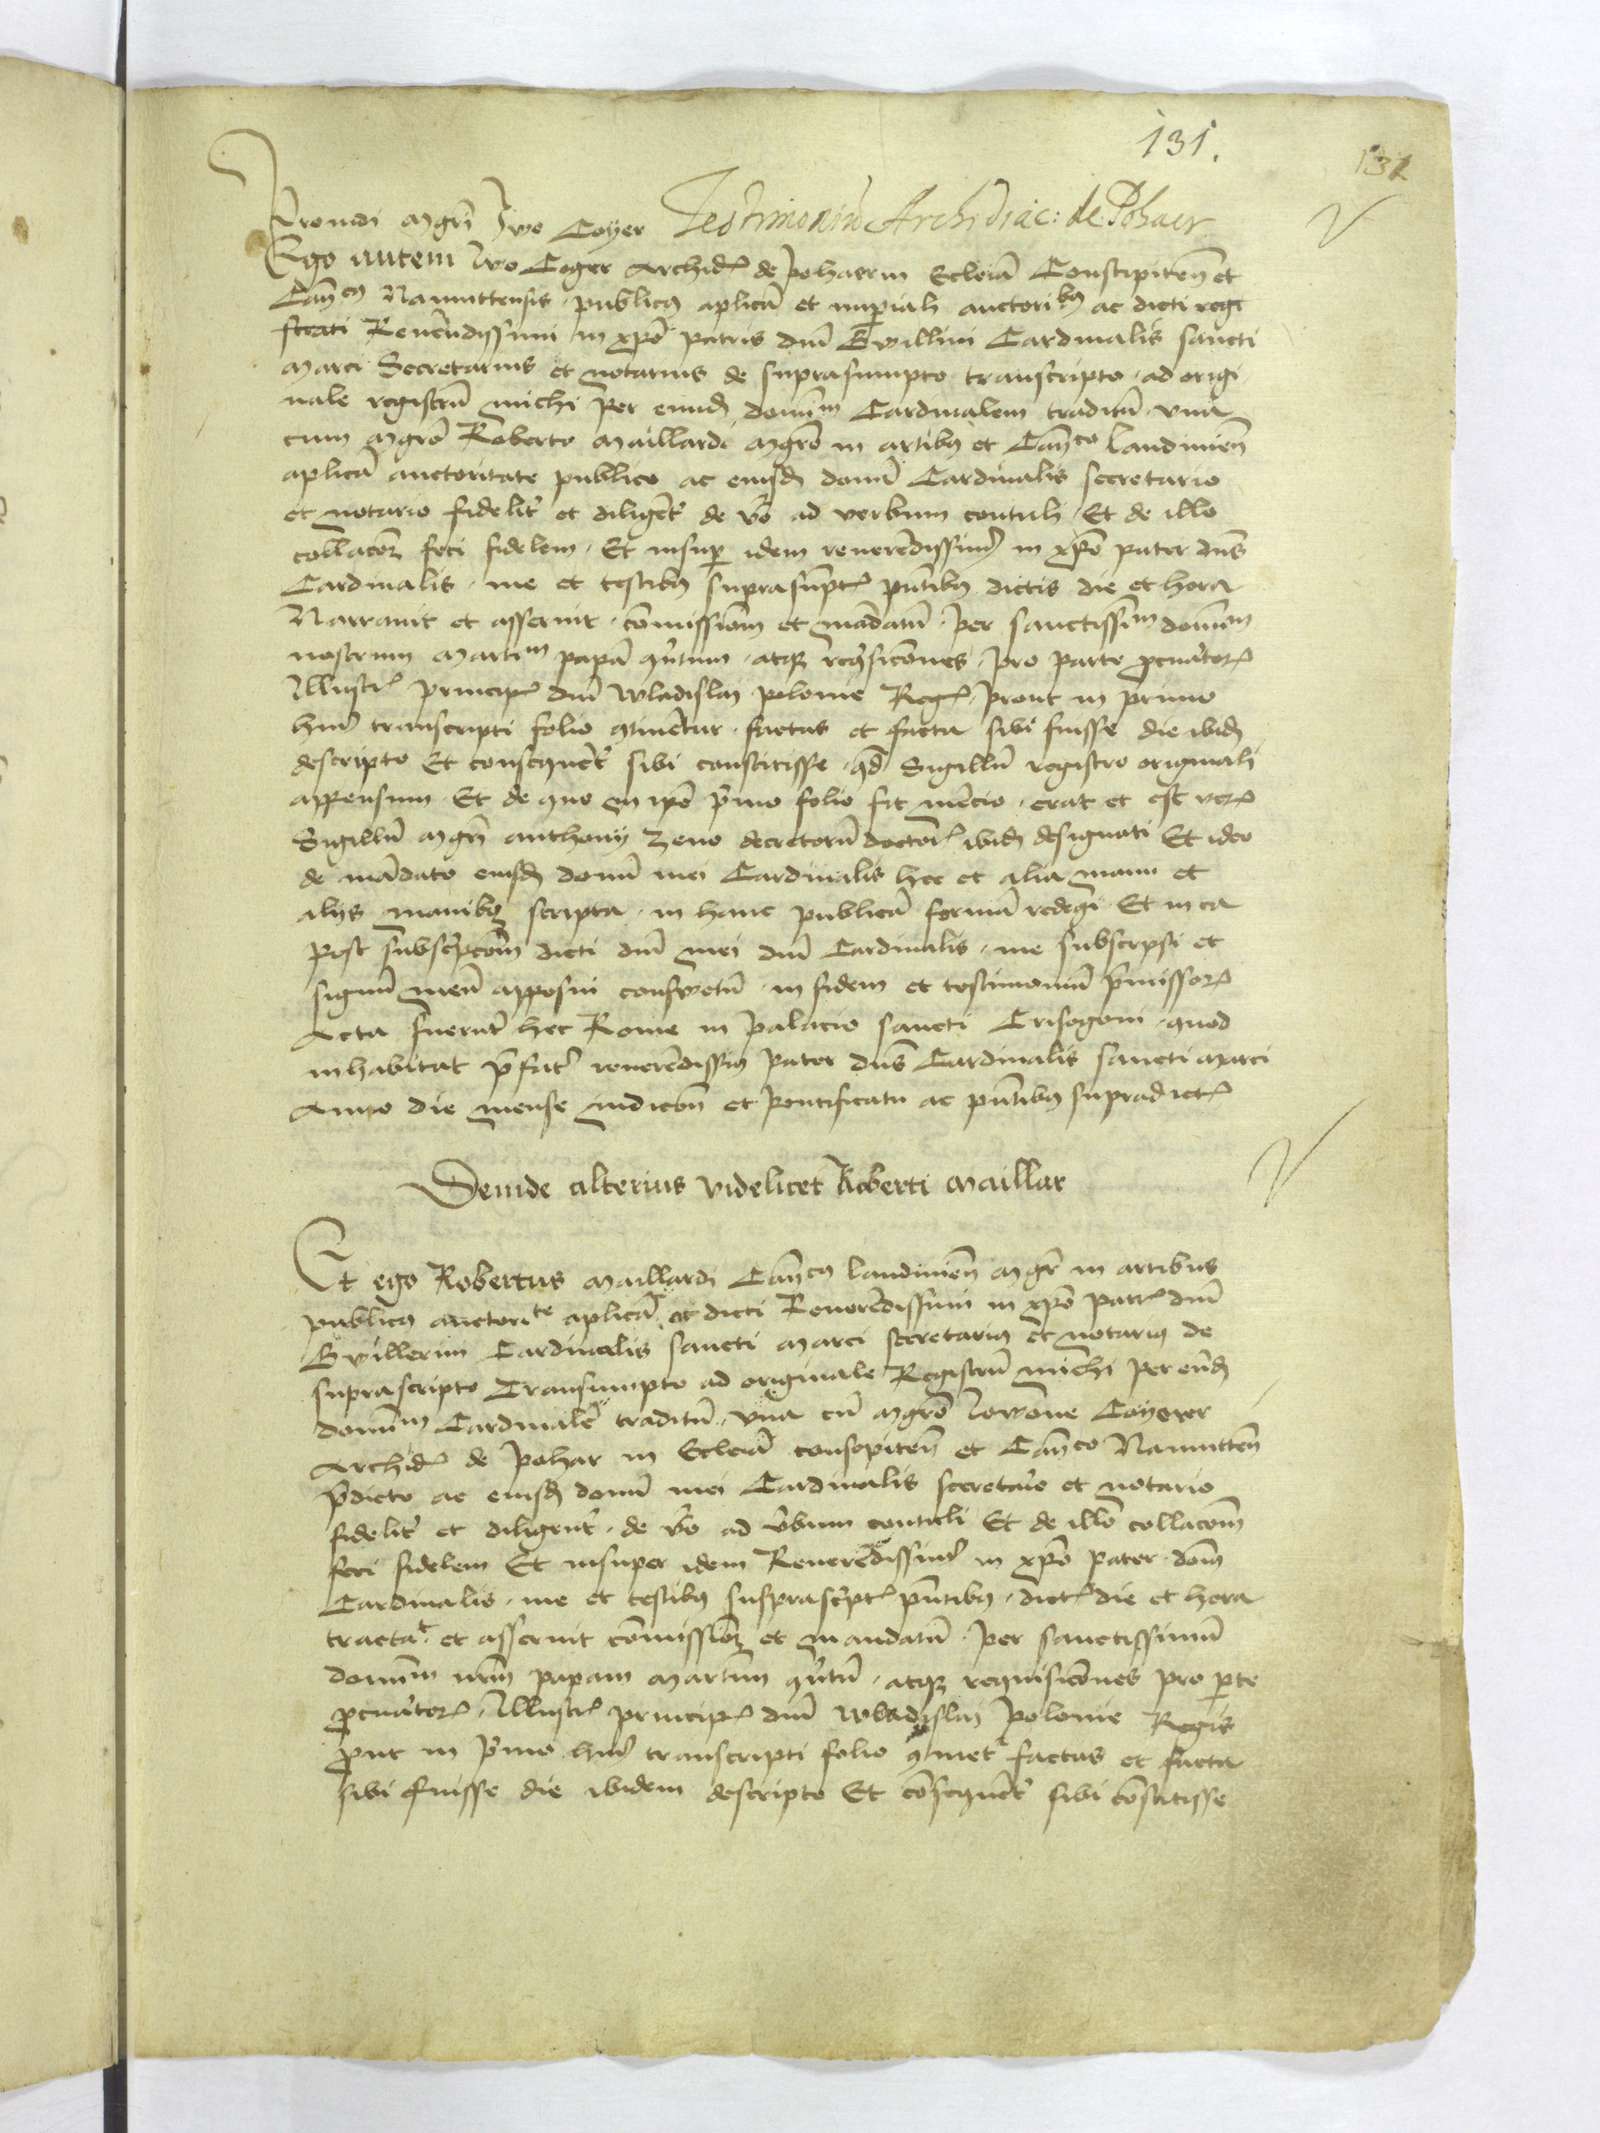 131.
131
Prouidi mgri Ivo Coyer Testimoniũ Archidiac: de Pohaer
Ego autem Ivo Coger Archid de pohaer in Eccleiã Conscipiteñ et
Cañcus Nannittensis publicus aplicã et imperiali auctoribus ac dicti regi
strati Reuerendissimi in xpõ patris dñi Gwillmi Cardinalis sancti
marci Secretarius et notarius de suprasumpto transcripto ad origi
nale registrũ michi per eundem dominum Cardinalem traditũ vna
cum mgrõ Roberto maillardi mgrõ in artibus et Cañco landunieñ
aplicã auctoritate publico ac eiusdem domini Cardinalis secretario
et notario fidelit et diligent de vo ad verbum contuli Et de illo
collacõem feci fidelem Et insup idem reuerẽdissimus in xpõ pater dñs
Cardinalis me et testibus suprasumpt pñtibus dictis die et hora
Narrauit et asseruit cõmissionem et mãdatũ per sanctissimum dominum
nostrum martinum papã quintum atque requisicõnes pro parte procuator
Illustris principis dñi wladislai polonie Regis prout in primo
huius transcripti folio continetur factas et facta sibi fuisse die ibidem
descripto Et consequent sibi constitisse quod Sigillũ registro originali
appensum Et de quo in ipõ primo folio fit mencio erat et est verum
Sigillũ mgri anthonij zeno decretorũ doctoris ibidem designati Et ideo
de mãdato eiusdem domini mei Cardinalis hec et alia manu et
alijs manibus scripta in hanc publicã formã redegi Et in ea
post subscripcõm dicti dñi mei dñi Cardinalis me subscripsi et
signũ meũ apposui consuetũ in fidem et testimoniũ premissorum
Acta fuerunt hec Rome in palacio sancti Crisogoni quod
inhabitat prefatus reuerẽdissimus pater dñs Cardinalis sancti marci
Anno die mense indicoñ et pontificatu ac pñtibus supradictis
Deinde alterius videlicet Roberti maillar
Et ego Robertus maillardi Cañcus landunieñ mgr in artibus
publicus auctorite aplicã ac dicti Reuerẽdissimi in xpõ patris dñi
Gwillermi Cardinalis sancti marci secretarius et notarius de
suprascripto Transumpto ad originale Registrũ michi per eundem
dominum Cardinalẽ traditũ vna cũ mgrõ Iowone Coyerer
Archid de pohar in Eccleiã consopiteñ et Cañco Nannitteñ
predicto ac eiusdem domini mei Cardinalis secretario et notario
fidelit et diligent de vo ad verbum contuli Et de illo collacõm
feci fidelem Et insuper idem Reuerẽdissimus in xpõ pater dom
Cardinalis me et testibus susprascript pñtibus dict die et hora
tractat et asseruit cõmissionem et mandatũ per sanctissimũ
dominum nrm papam martinum quintũ atque requisicõnes pro parte
procuator Illustris principis dñi wladislai polonie Regis
prout in primo huius transcripti folio continet factas et facta
sibi fuisse die ibidem descripto Et cõsequent sibi cõstitisse